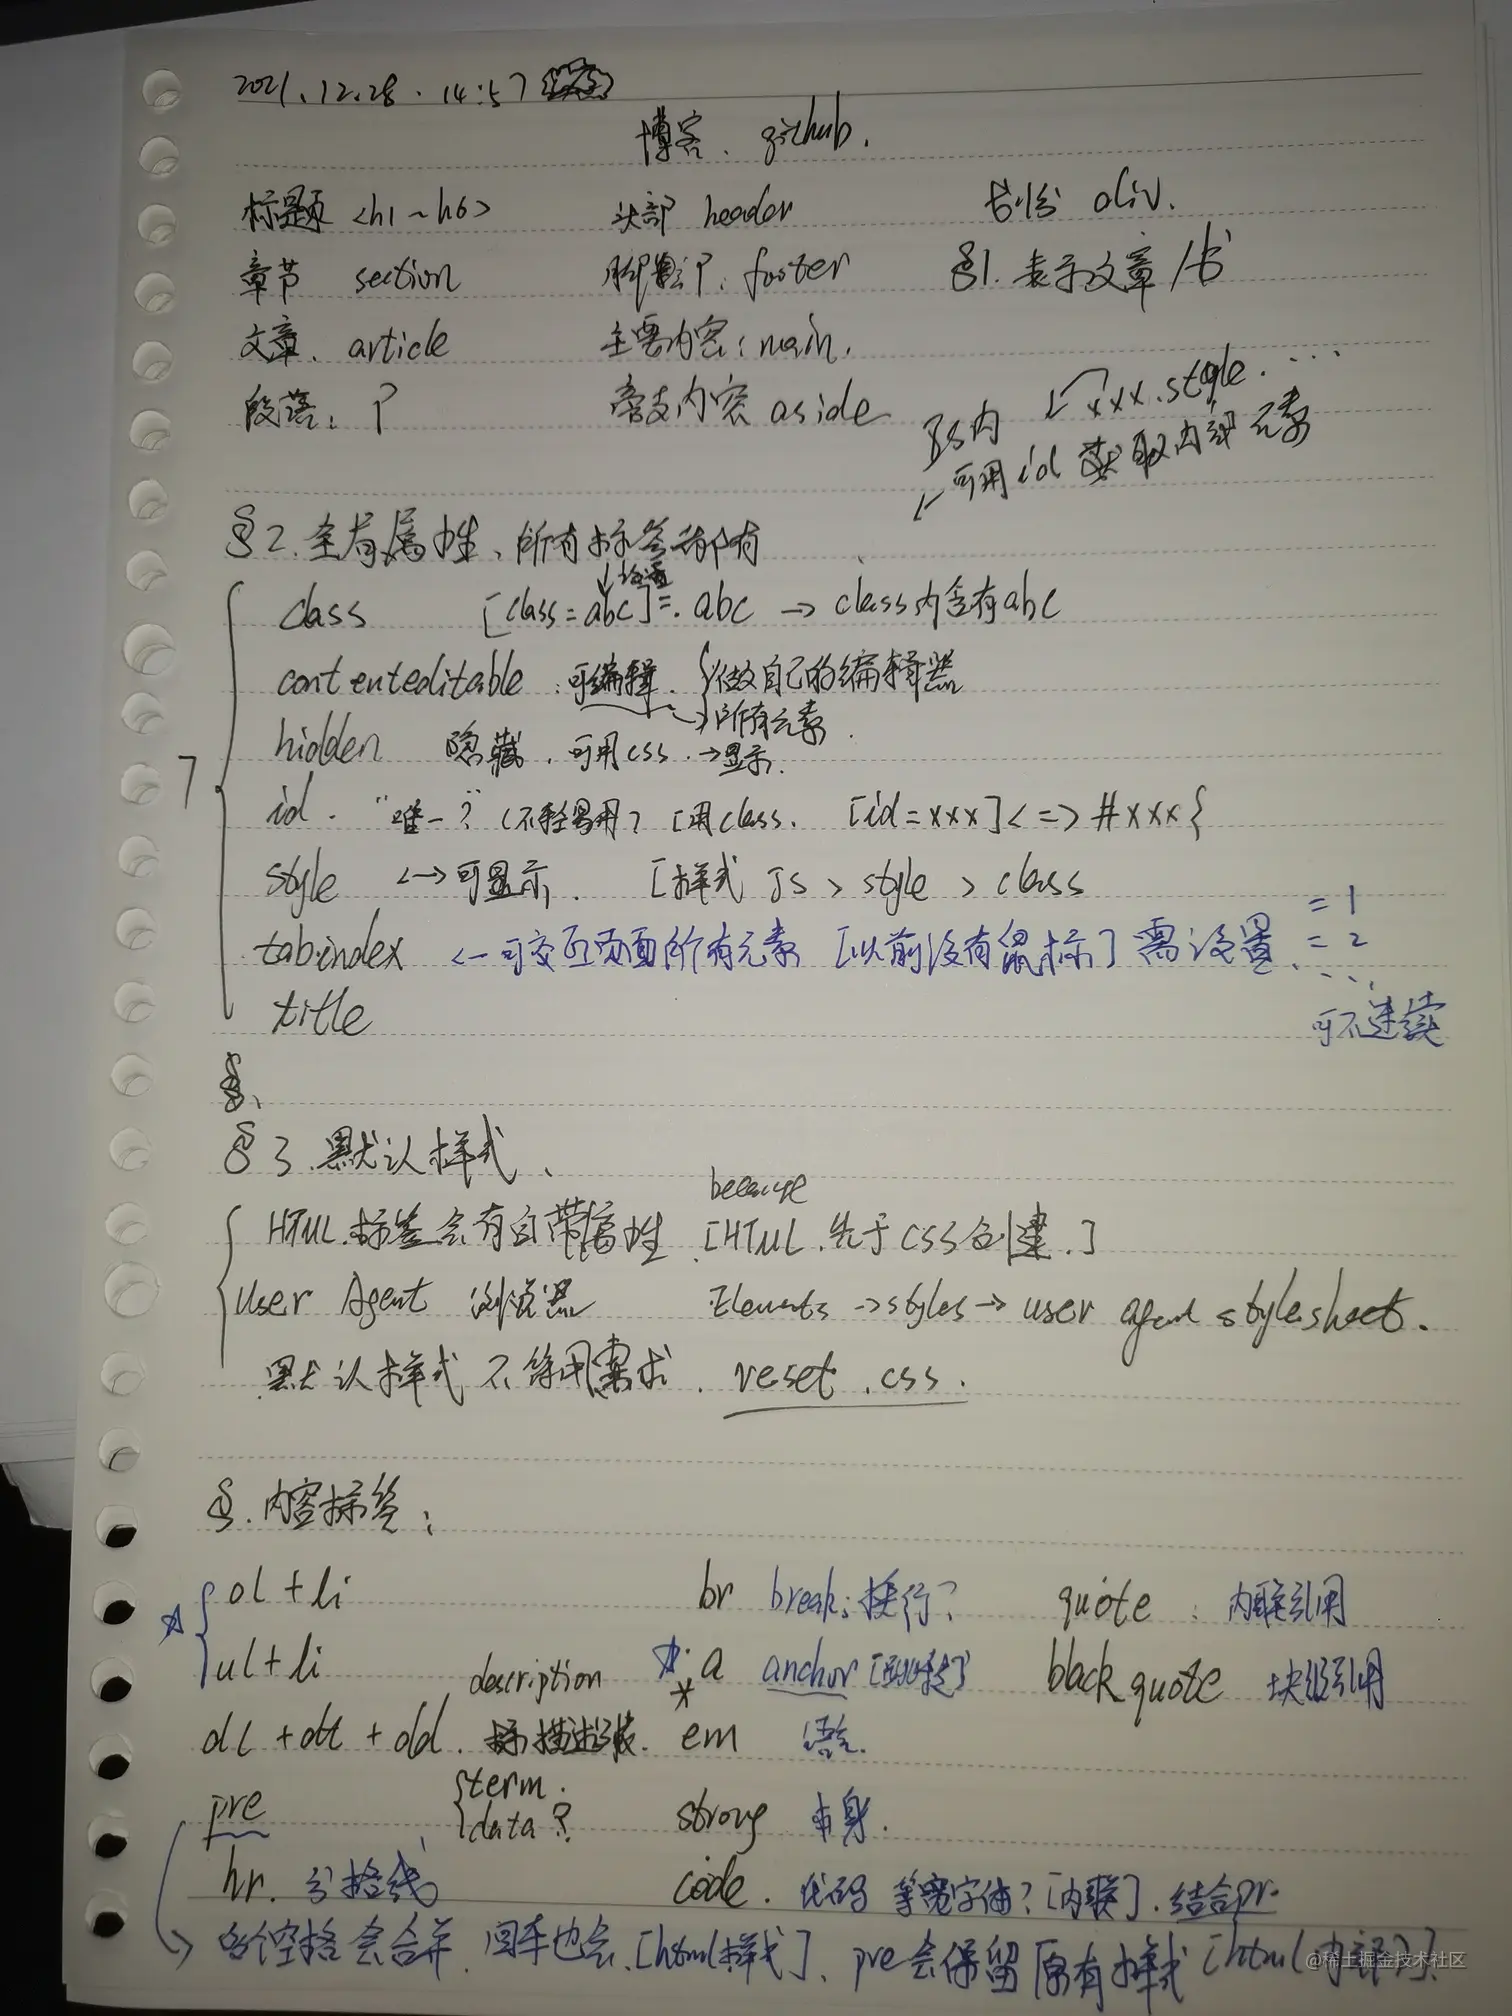 2021.12.28. 14:57
博客. github.
标题 <h1~h6> 头部 header 划分 div.
章节 section 脚部: footer §1. 表示文章/书
文章. article 主要内容: main.
段落: P 旁支内容 aside
JS内 xxx.style. ...
可用id 获取内部元素
§2. 全局属性、所有标签都有
class [class=abc]=.abc → class内含有abc
contenteditable 可编辑. 做自己的编辑器
所有元素
hidden 隐藏. 可用css. →显示.
7
id. "唯一?" (不轻易用) [用class. [id=xxx]<=>#xxx{
style <-->可显示. [样式 JS > style > class
= 1
tabindex <-可交互页面所有元素 [以前没有鼠标] 需设置. = 2
...
title 可不连续
§.
§3. 默认样式.
because
HTML.标签会有自带属性 [HTML.先于CSS创建.]
User Agent 浏览器 Elements →styles→ user agent stylesheet.
默认样式不符用需求. reset.css.
§.内容标签:
ol+li br break: 换行? quote: 内联引用
ul+li description a anchor black quote 块级引用
dl+dt+dd. 描述 em 语气.
pre term. strong 本身.
data?
hr. 分格线 code. 代码 等宽字体? [内联]. 结合pr
多个空格会合并. 回车也会. [html样式]. pre会保留原有样式 [html内部].
@稀土掘金技术社区